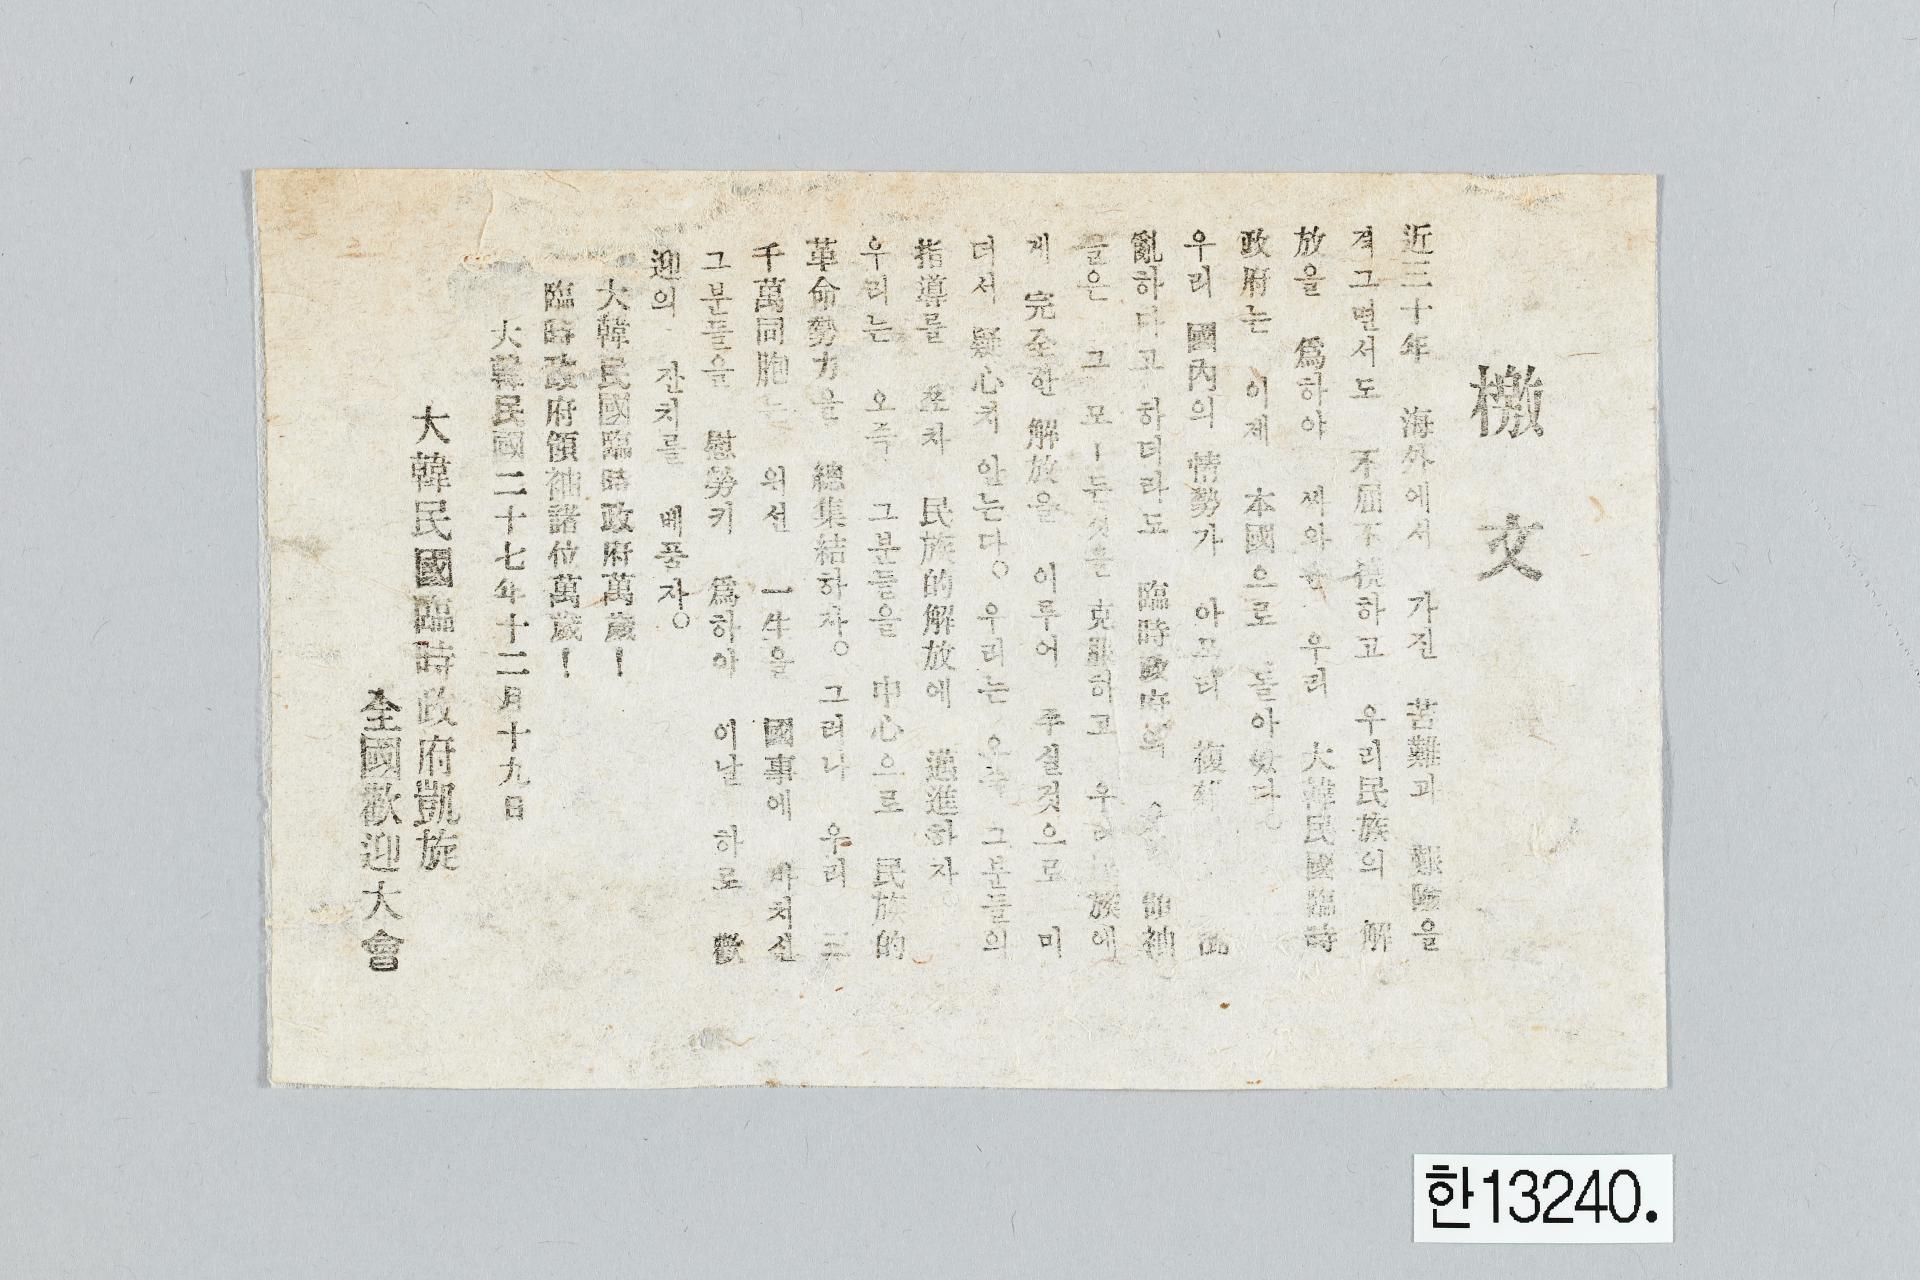 檄文
近三十年 海外에서 가진 苦難과 艱險을
격그면서도 不屈不撓하고 우리民族의 解
放을 爲하야 싸와온 우리 大韓民國臨時
政府는 이제 本國으로 돌아왔다。
우리 國內의 情勢가 아모리 複雜
亂하다고하더라도 臨時政府의 領袖
들은 그 모ー든것을 克服하고 우리民族에
게 完全한 解放을 이루어 주실것으로 미
더서 疑心치 안는다。우리는 오즉 그분들의
指導를 조차 民族的解放에 邁進하자。
우리는 오즉 그분들을 中心으로 民族的
革命勢力을 總集結하자。그러나 우리 三
千萬同胞는 위선 一生을 國事에 바치신
그분들을 慰勞키 爲하야 이날 하로 歡
迎의 잔치를 베풀자。
大韓民國臨時政府萬歲!
臨時政府領袖諸位萬歲!
大韓民國二十七年十二月十九日
大韓民國臨時政府凱旋
全國歡迎大會
한13240.